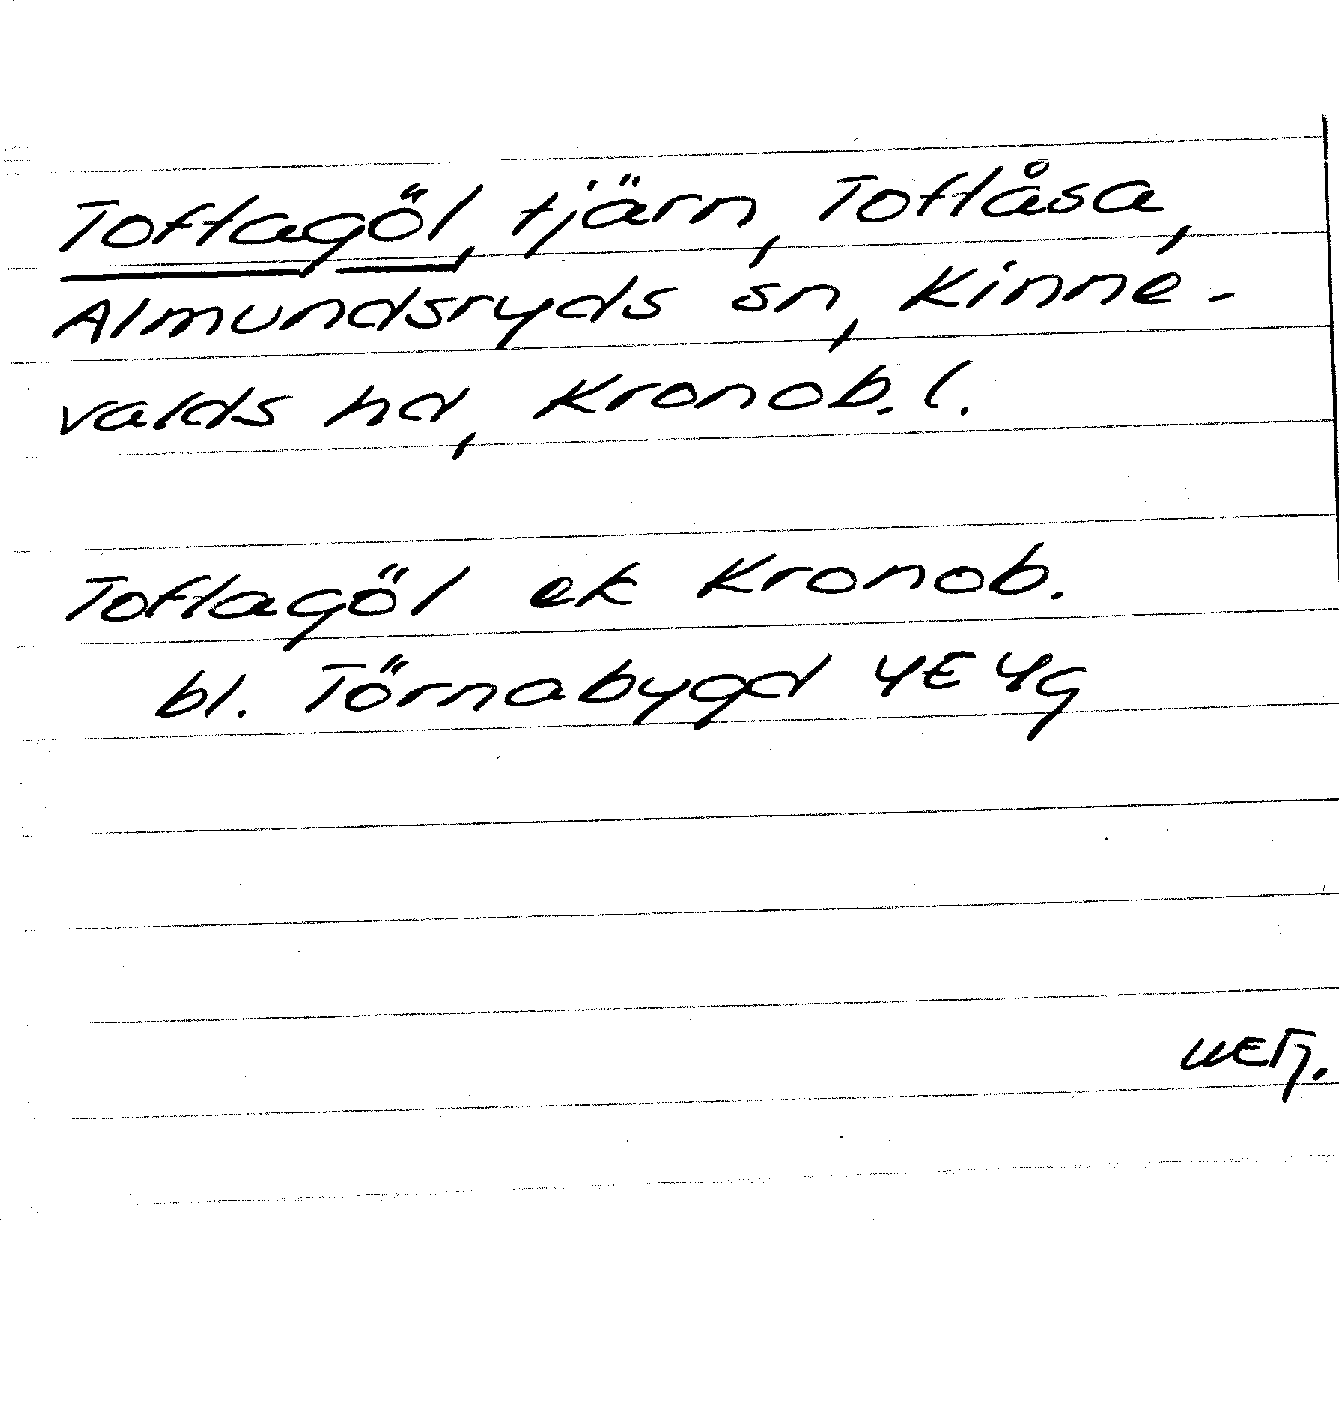 Toftagöl, tjärn, Toftåsa,
Almundsryds sn, Kinne-
valds hd, Kronob. l.
Toftagöl ek Kronob.
bl. Törnabygd 4E 4g